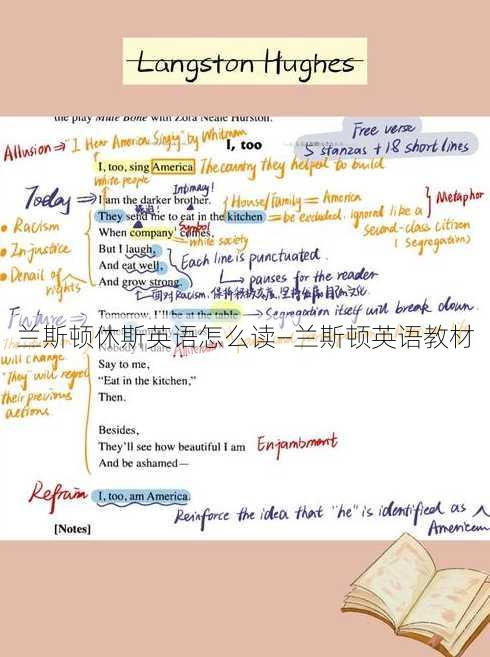 Langston Hughes
the play Mule Bone with Zora Neale Hurston.
Allusion → "I Hear America Singing" by Whitman
I, too
Free verse
5 stanzas + 18 short lines
I, too, sing America. The country they helped to build
white people
Intimacy!
Today → I am the darker brother. House/family = America
Metaphor
They send me to eat in the kitchen = be excluded, ignored like a second-class citizen
(segregation)
• Racism
When company comes,
symbol
white society
• Injustice
But I laugh,
Each line is punctuated.
• Denail of rights
And eat well,
↳ pauses for the reader
And grow strong.
Future →
Tomorrow, I'll be at the table → Segregation itself will break down.
兰斯顿休斯英语怎么读—兰斯顿英语教材
Nobody'll dare
will change.
Say to me,
"They" will regret
"Eat in the kitchen,"
their previous
Then.
actions.
Besides,
They'll see how beautiful I am
Enjambment
And be ashamed—
Refrain
I, too, am America.
Reinforce the idea that "he" is identified as American
[Notes]